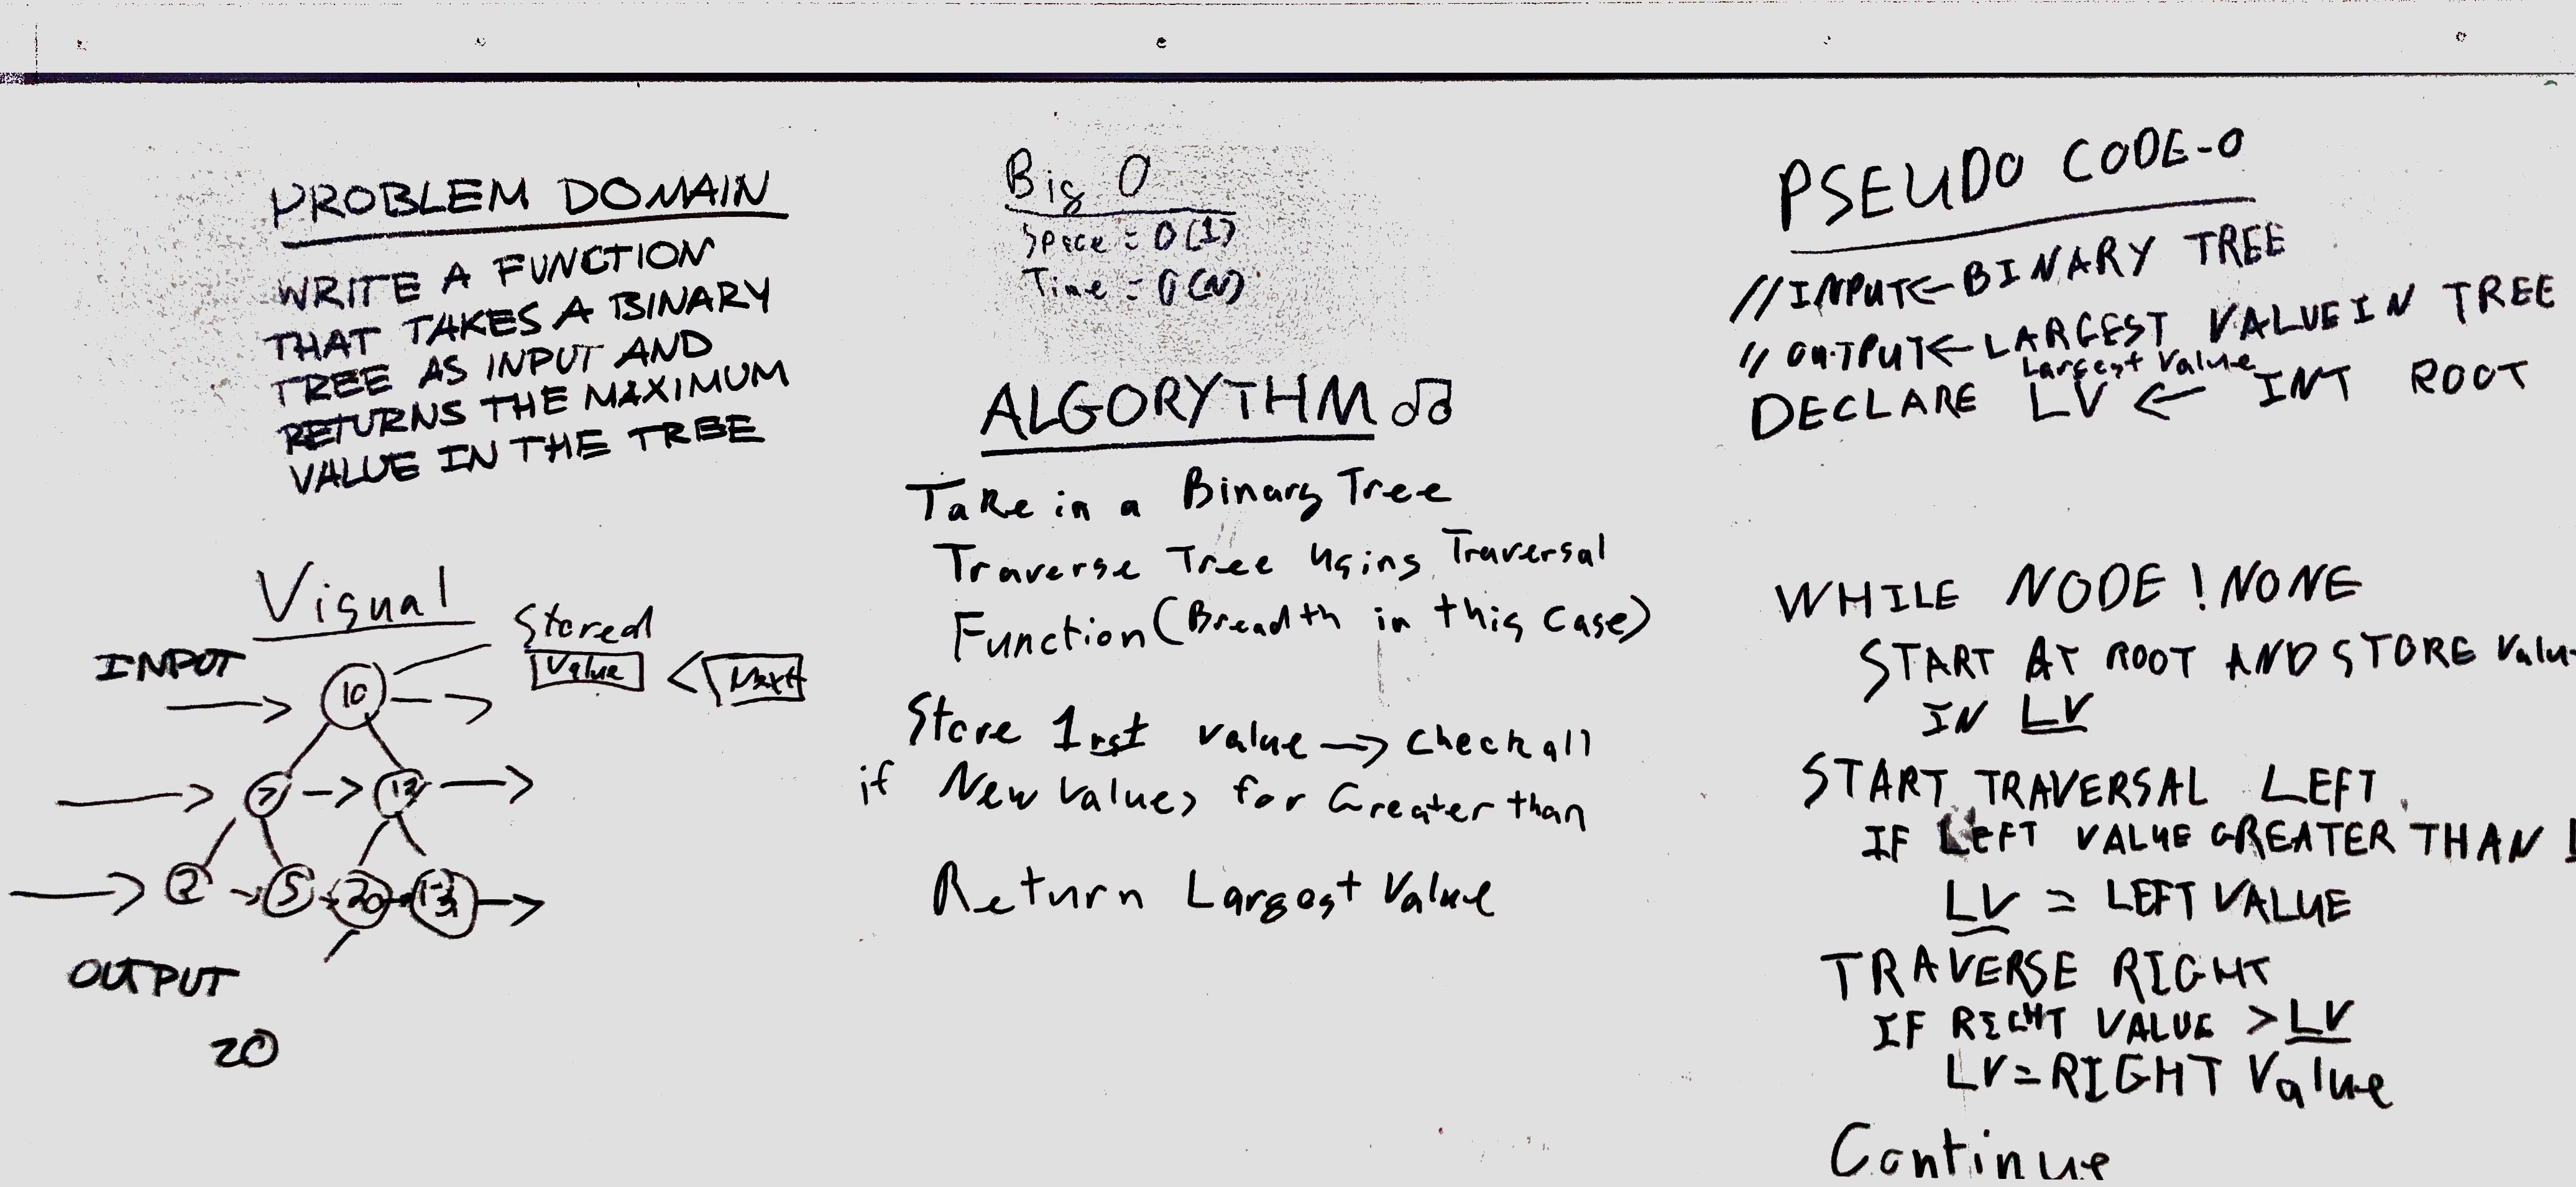 PROBLEM DOMAIN
WRITE A FUNCTION
THAT TAKES A BINARY
TREE AS INPUT AND
RETURNS THE MAXIMUM
VALUE IN THE TREE
Visual
INPUT
Stored
Value < Next
10
7 12
2 5 20 13
OUTPUT
20
Big O
Space = O(1)
Time = O(N)
ALGORYTHM ♫
Take in a Binary Tree
Traverse Tree using Traversal
Function (Breadth in this case)
Store 1rst value → check all
if New values for Greater than
Return Largest Value
PSEUDO CODE-O
// INPUT ← BINARY TREE
// OUTPUT ← LARGEST VALUE IN TREE
Largest Value
DECLARE LV ← INT ROOT
WHILE NODE ! NONE
START AT ROOT AND STORE Valu
IN LV
START TRAVERSAL LEFT
IF LEFT VALUE GREATER THAN
LV = LEFT VALUE
TRAVERSE RIGHT
IF RIGHT VALUE > LV
LV = RIGHT Value
Continue